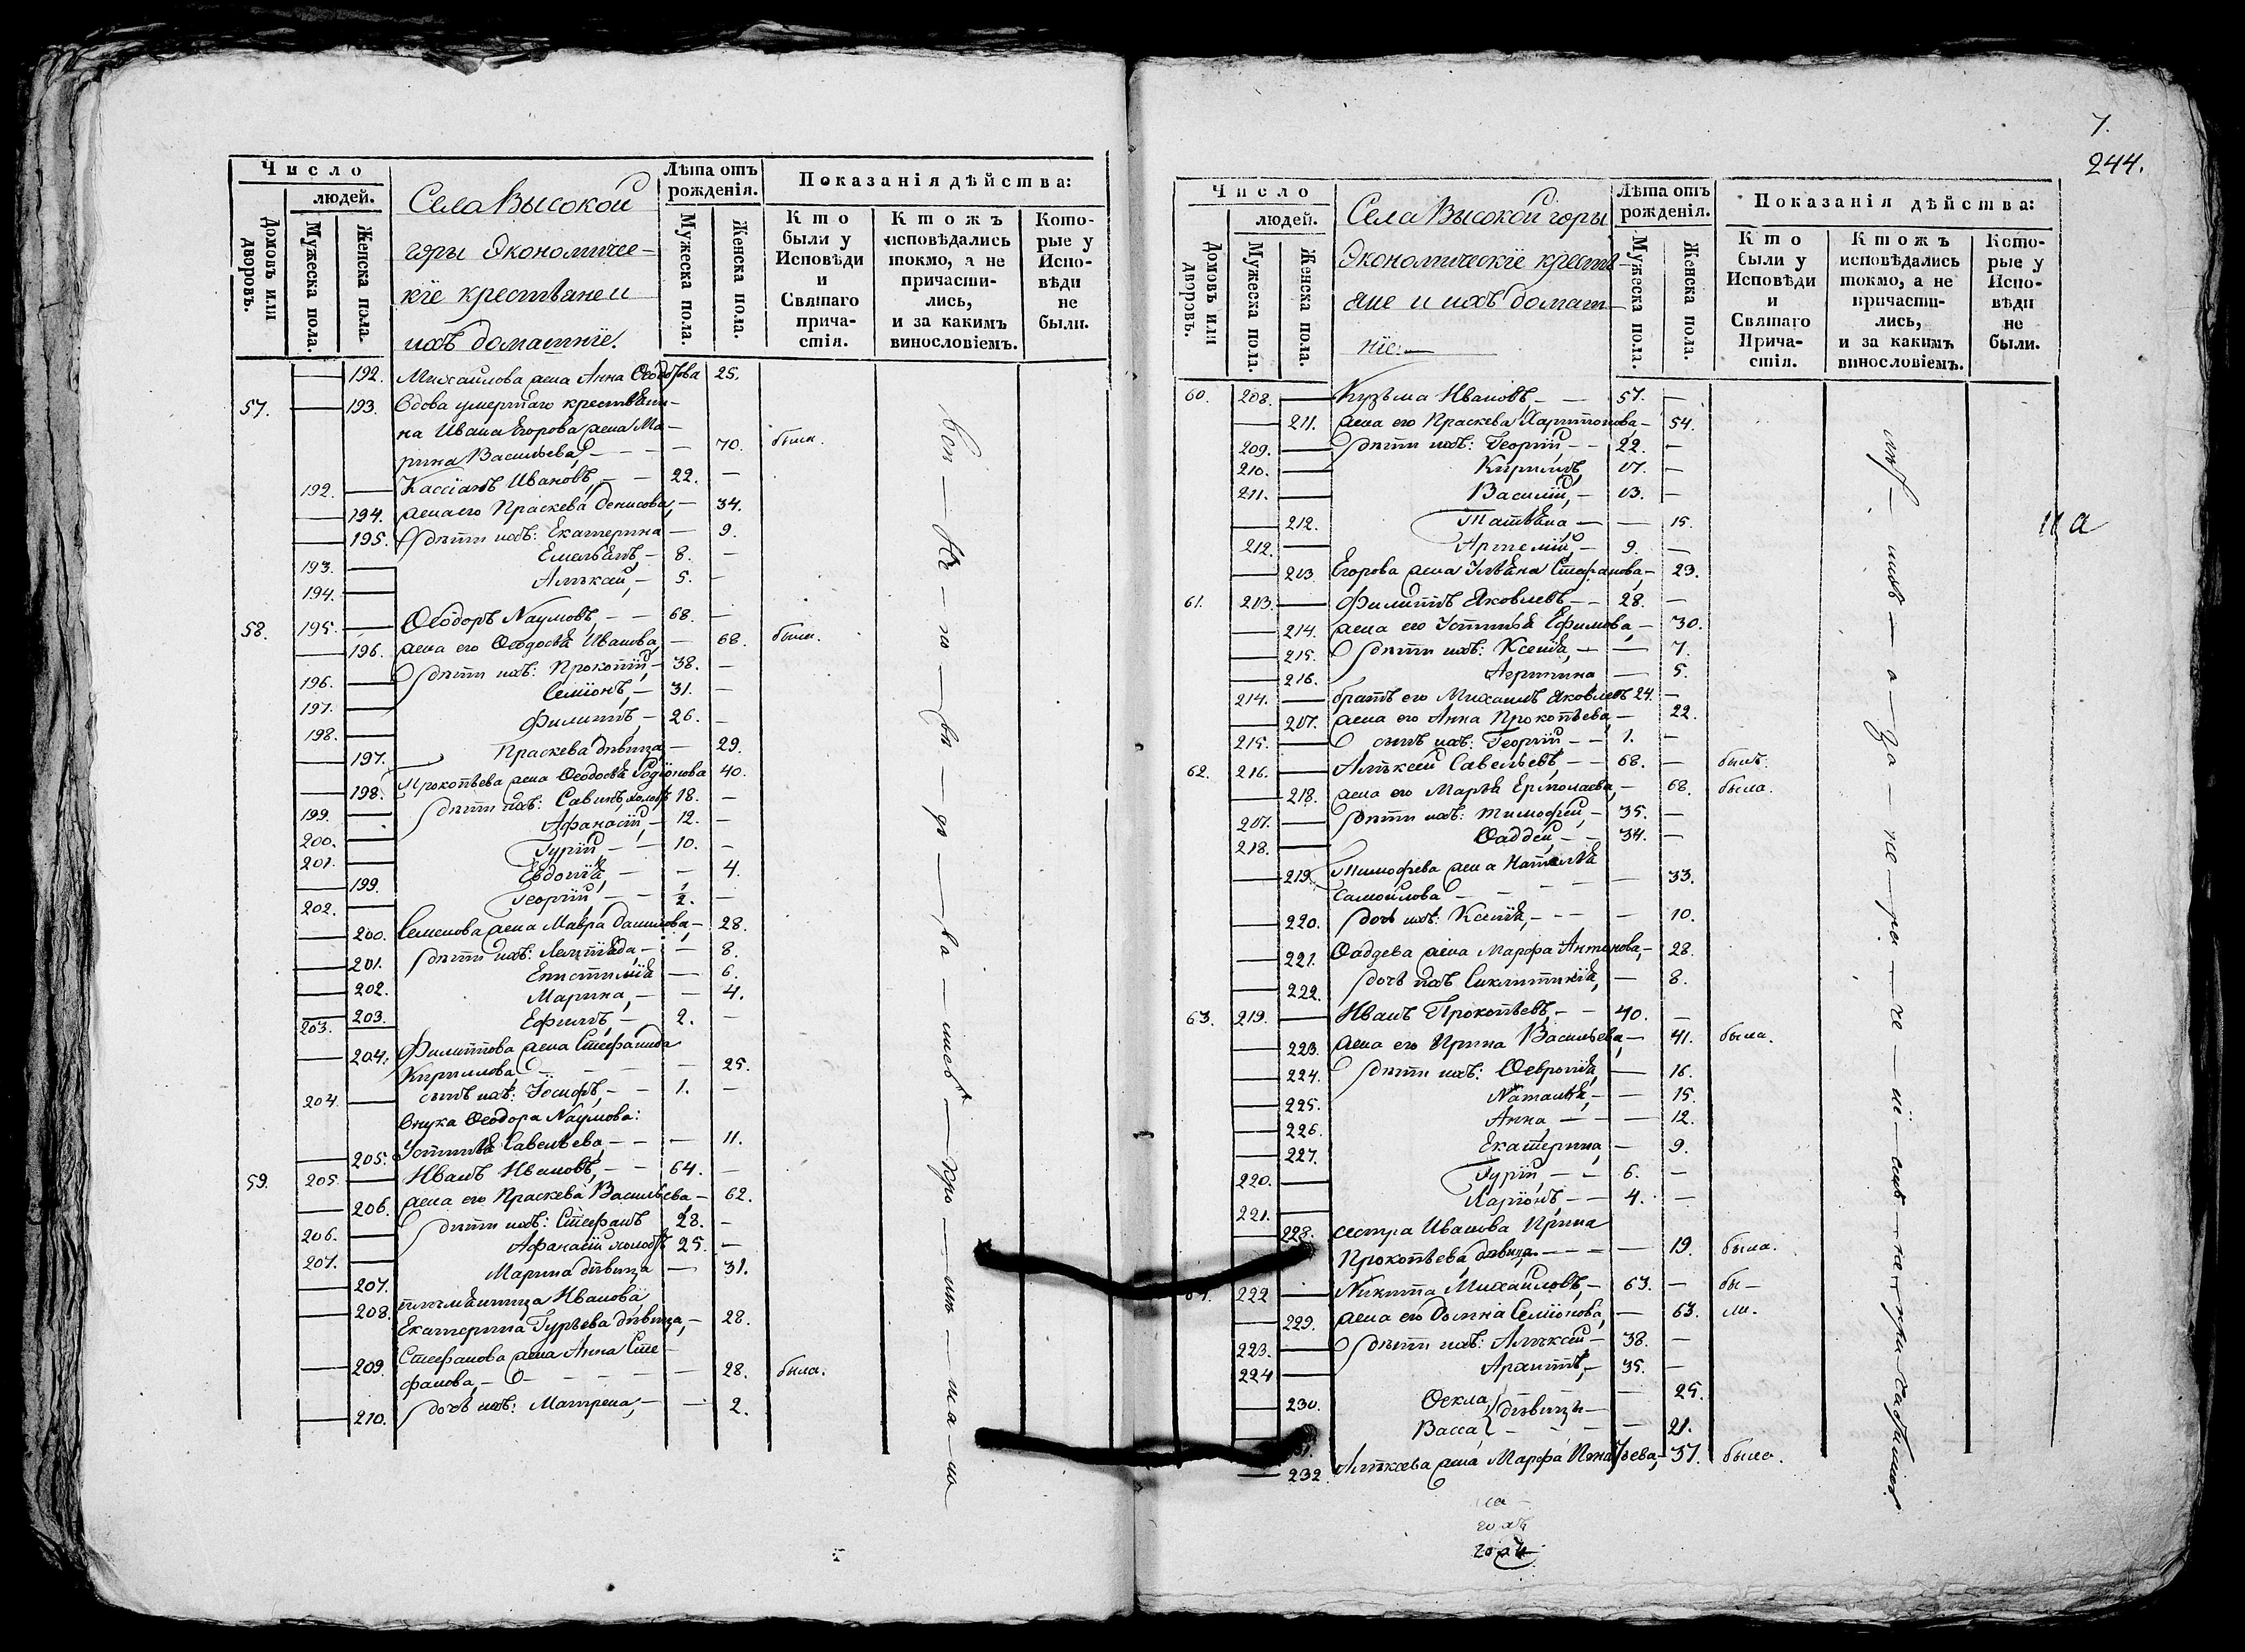 Число
людей.
Домовъ или дворовъ.
Мужеска пола.
Женска пола.
Села Высокой
горы Экономичес-
кїе крестьяне и
ихъ домашнїе.
Лѣта отъ рожденія.
Мужеска пола.
Женска пола.
Показанія дѣйства:
Кто были у Исповѣди и Святаго причастія.
Ктожъ исповѣдались токмо, а не причастились, и за какимъ винословіемъ.
Которые у Исповѣди не были.
192. Михайлова жена Анна Ѳеодорова 25.
57. 193. Вдова умершаго крестьяни-
на Ивана Егорова жена Ма-
рина Васильева, 70. была.
192. Кассіанъ Ивановъ, 22.
194. жена его Праскева Денисова, 34.
195. дѣти ихъ: Екатерина 9.
193. Емельянъ, 8.
194. Алѣксей, 5.
58. 195. Ѳеодоръ Наумовъ, 68.
196. жена его Ѳеодосья Иванова, 68. были.
196. дѣти ихъ: Прокопїй, 38.
197. Семїонъ, 31.
198. Филиппъ, 26.
197. Праскева дѣвица 29.
198. Прокопьева жена Ѳеодосья Родїонова 40.
199. дѣти ихъ: Савинъ, холостъ 18.
200. Афанасїй, 12.
201. Гурїй 10.
199. Евдокїя 4.
202. Георгїй, 1/2.
200. Семенова жена Мавра Данилова, 28.
201. дѣти ихъ: 8.
202. Епистимїя 6.
203. Марина, 4.
203. Ефимъ, 2.
204. Филиппова жена Стефанида
Кириллова 25.
204. сынъ ихъ: Їосифъ, 1.
Внука Ѳеодора Наумова:
205. Устинья Савельева, 11.
59. 205. Иванъ Ивановъ, 64.
206. жена его Праскева Васильева 62.
206. дѣти ихъ: Стефанъ 28.
207. Афанасїй холостъ 25.
207. Марина дѣвица 31.
208. племянница Иванова
Екатерина Гурьева дѣвица, 28.
209. Стефанова жена Анна Сте-
фанова, 28. была.
210. дочь ихъ: Матрена, 2.
7.
244.
Число
людей.
Домовъ или дворовъ.
Мужеска пола.
Женска пола.
Села Высокой горы
Экономическїе крестья-
не и ихъ домаш-
нїе:
Лѣта отъ рожденія.
Мужеска пола.
Женска пола.
Показанія дѣйства:
Кто были у Исповѣди и Святаго Причастія.
Ктожъ исповѣдались токмо, а не причастились, и за какимъ винословіемъ.
Которые у Исповѣди не были.
60. 208. Кузьма Ивановъ, 57.
211. жена его Праскева Харитонова, 54.
209. дѣти ихъ: Георгїй 22.
210. Кирилъ, 17.
211. Василїй, 13.
212. Татьяна 15.
212. Артемїй, 9.
213. Егорова жена Ульяна Стефанова, 23.
61. 213. Филиппъ Яковлевъ 28.
214. жена его Устинья Ефимова, 30.
215. дѣти ихъ: Ксенья, 7.
216. 5.
214. братъ его Михаилъ Яковлевъ 24.
217. жена его Анна Прокопьева, 22.
215. сынъ ихъ: Георгїй 1.
62. 216. Алѣксей Савельевъ, 68. былъ.
218. жена его Марья Ермолаева, 68. была.
217. дѣти ихъ: Тимофей, 35.
218. Ѳаддей, 34.
219. Тимофеева жена Наталья
Самойлова 33.
220. дочь ихъ: Ксенїя, 10.
221. Ѳаддеева жена Марфа Антонова, 28.
222. дочь ихъ Синклитикїя, 8.
63. 219. Иванъ Прокопьевъ, 40.
223. жена его Ирина Васильева, 41. была.
224. дѣти ихъ: Ѳевронїя, 16.
225. Наталья, 15.
226. Анна 12.
227. Екатерина, 9.
220. Гурїй, 6.
221. Ларїонъ, 4.
228. сестра Иванова Ирина
Прокопьева, дѣвица 19. была.
222 Никита Михайловъ, 63. бы-
229. жена его Домна Семїонова, 63. ли.
223. дѣти ихъ: Алѣксей 38.
224 35.
230. Ѳекла, дѣвицы 25.
Васса 21.
232. Алѣксеева жена Марфа 37. была.
11 а